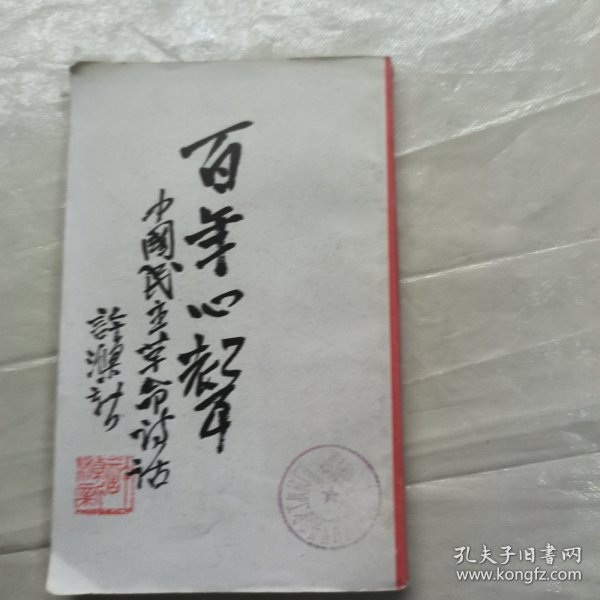 百年心聲
中國民主革命詩话
許滌新
孔夫子旧书网
www.kongfz.com